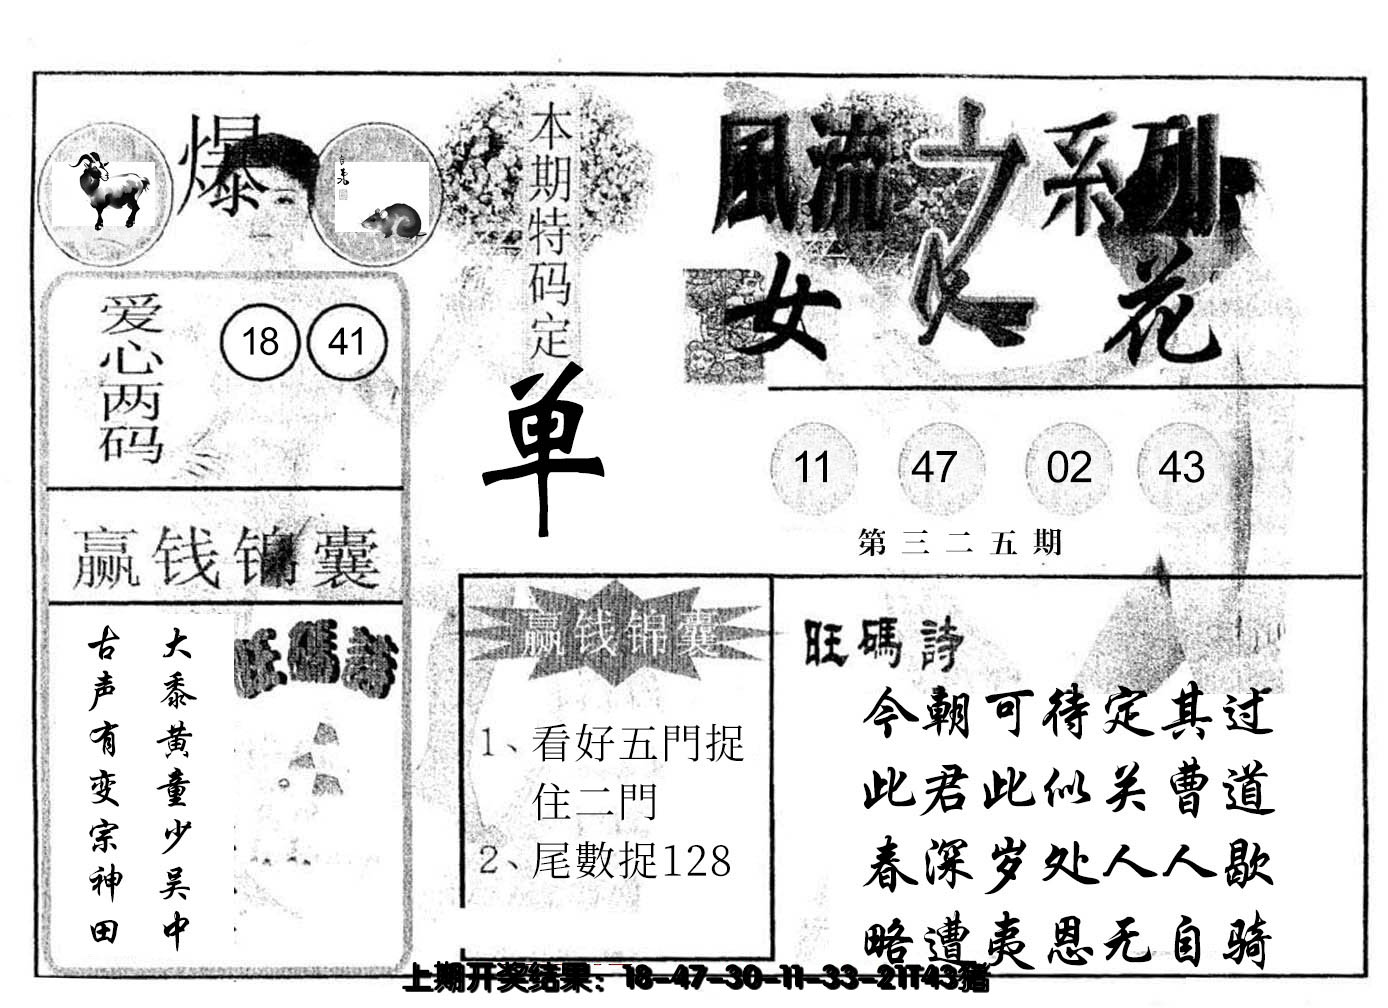 爆
本期特码定
单
風流之系列
女人花
爱心两码
18 41
11 47 02 43
第三二五期
赢钱锦囊
大黍黄童少吴中
古声有变宗神田
旺碼詩
赢钱锦囊
1、看好五門捉
住二門
2、尾數捉128
旺碼詩
今朝可待定其过
此君此似关曹道
春深岁处人人歇
略遭夷恩无自骑
上期开奖结果：18-47-30-11-33-21T43猪